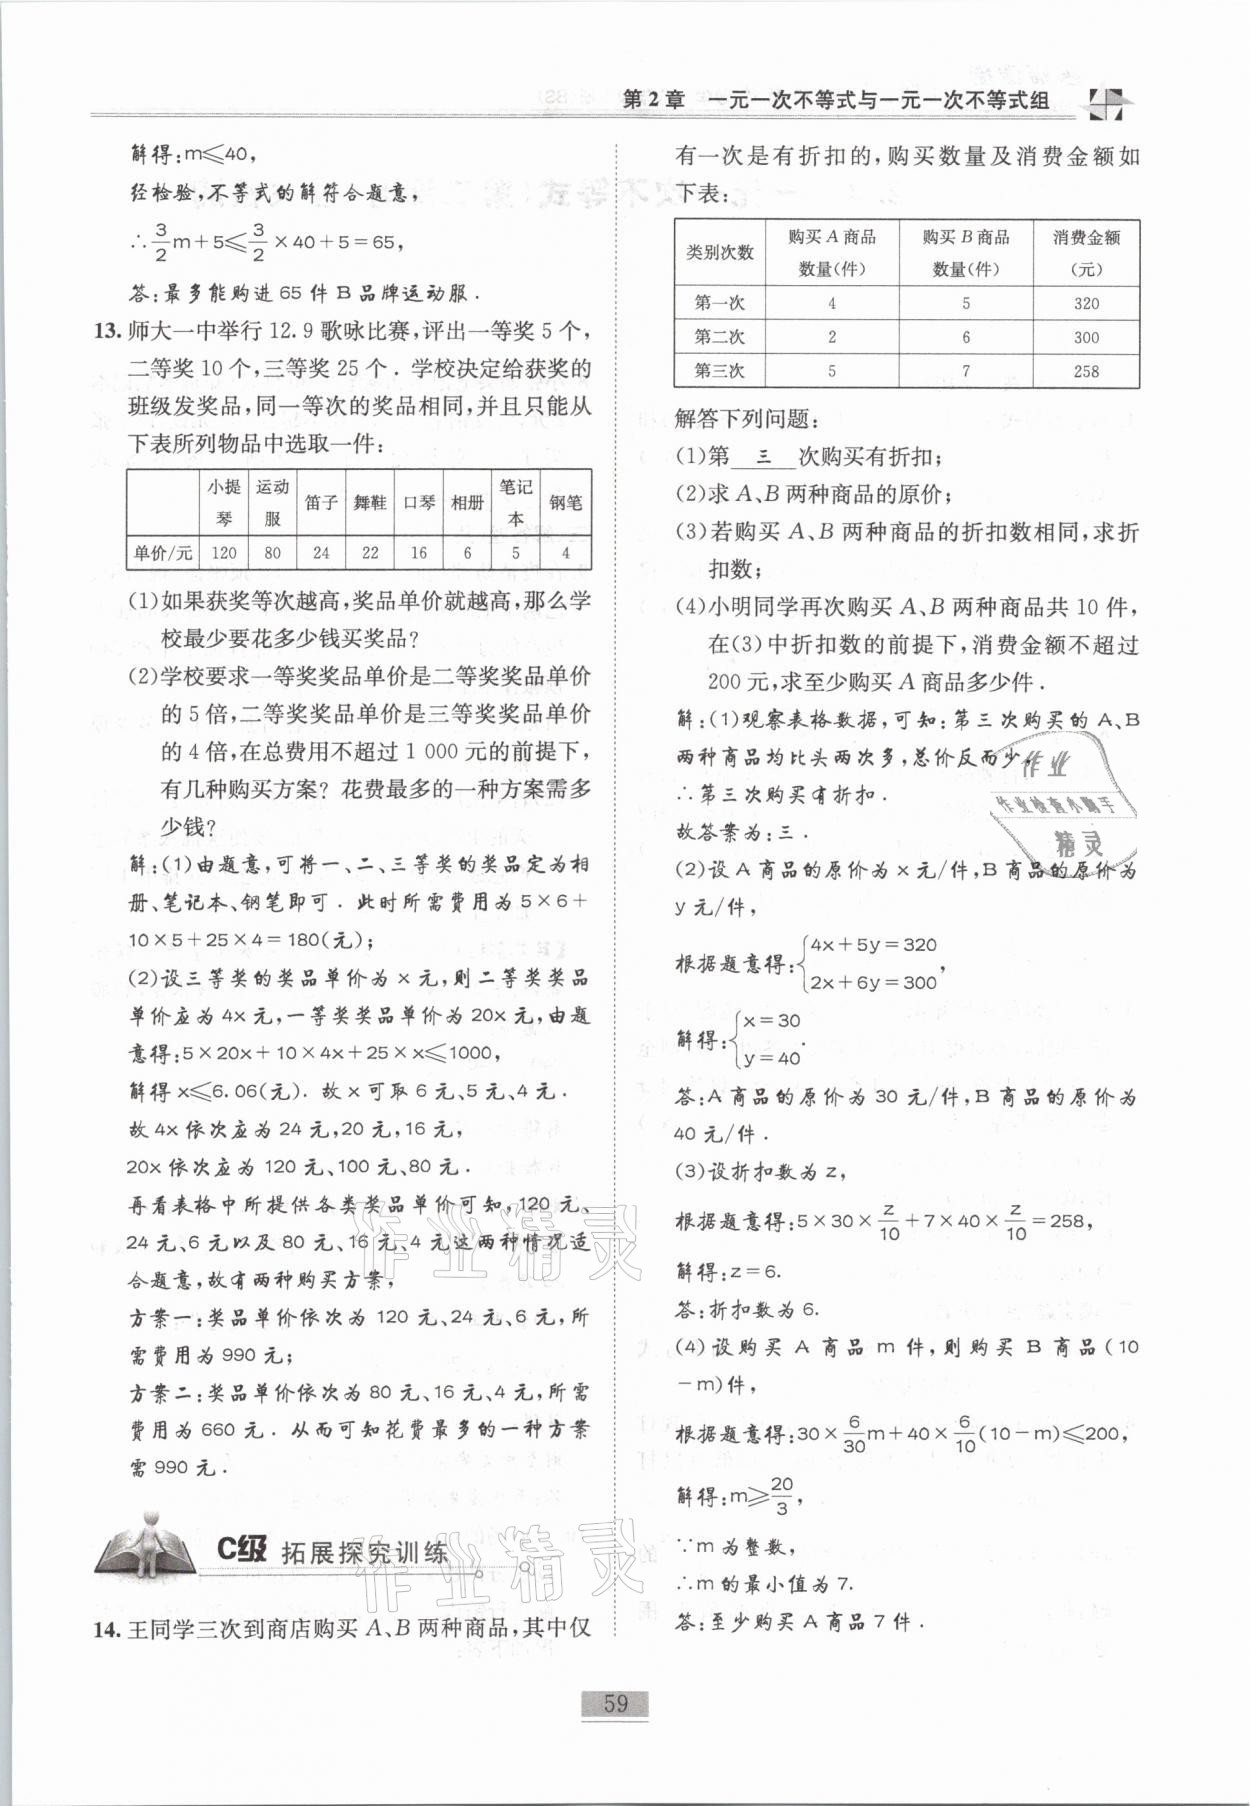 第2章 一元一次不等式与一元一次不等式组
解得:m≤40,
经检验,不等式的解符合题意,
∴3/2m+5≤3/2×40+5=65,
答:最多能购进65件B品牌运动服.
13. 师大一中举行12.9歌咏比赛,评出一等奖5个,
二等奖10个,三等奖25个.学校决定给获奖的
班级发奖品,同一等次的奖品相同,并且只能从
下表所列物品中选取一件:
小提琴 运动服 笛子 舞鞋 口琴 相册 笔记本 钢笔
单价/元 120 80 24 22 16 6 5 4
(1)如果获奖等次越高,奖品单价就越高,那么学
校最少要花多少钱买奖品?
(2)学校要求一等奖奖品单价是二等奖奖品单价
的5倍,二等奖奖品单价是三等奖奖品单价
的4倍,在总费用不超过1 000元的前提下,
有几种购买方案? 花费最多的一种方案需多
少钱?
解:(1)由题意,可将一、二、三等奖的奖品定为相
册、笔记本、钢笔即可.此时所需费用为5×6+
10×5+25×4=180(元);
(2)设三等奖的奖品单价为x元,则二等奖奖品
单价应为4x元,一等奖奖品单价为20x元,由题
意得:5×20x+10×4x+25×x≤1000,
解得x≤6.06(元).故x可取6元、5元、4元.
故4x依次应为24元,20元,16元,
20x依次应为120元、100元、80元.
再看表格中所提供各类奖品单价可知,120元、
24元、6元以及80元、16元、4元这两种情况适
合题意,故有两种购买方案,
方案一:奖品单价依次为120元、24元、6元,所
需费用为990元;
方案二:奖品单价依次为80元、16元、4元,所需
费用为660元.从而可知花费最多的一种方案
需990元.
C级 拓展探究训练
14. 王同学三次到商店购买A、B两种商品,其中仅
有一次是有折扣的,购买数量及消费金额如
下表:
类别次数 购买A商品数量(件) 购买B商品数量(件) 消费金额(元)
第一次 4 5 320
第二次 2 6 300
第三次 5 7 258
解答下列问题:
(1)第 三 次购买有折扣;
(2)求A、B两种商品的原价;
(3)若购买A、B两种商品的折扣数相同,求折
扣数;
(4)小明同学再次购买A、B两种商品共10件,
在(3)中折扣数的前提下,消费金额不超过
200元,求至少购买A商品多少件.
解:(1)观察表格数据,可知:第三次购买的A、B
两种商品均比头两次多,总价反而少,
∴第三次购买有折扣.
故答案为:三.
(2)设A商品的原价为x元/件,B商品的原价为
y元/件,
根据题意得:{4x+5y=320
2x+6y=300,
解得:{x=30
y=40.
答:A商品的原价为30元/件,B商品的原价为
40元/件.
(3)设折扣数为z,
根据题意得:5×30×z/10+7×40×z/10=258,
解得:z=6.
答:折扣数为6.
(4)设购买A商品m件,则购买B商品(10
-m)件,
根据题意得:30×6/30m+40×6/10(10-m)≤200,
解得:m≥20/3,
∵m为整数,
∴m的最小值为7.
答:至少购买A商品7件.
作业
作业检查小助手
精灵
作业精灵
作业精灵
59